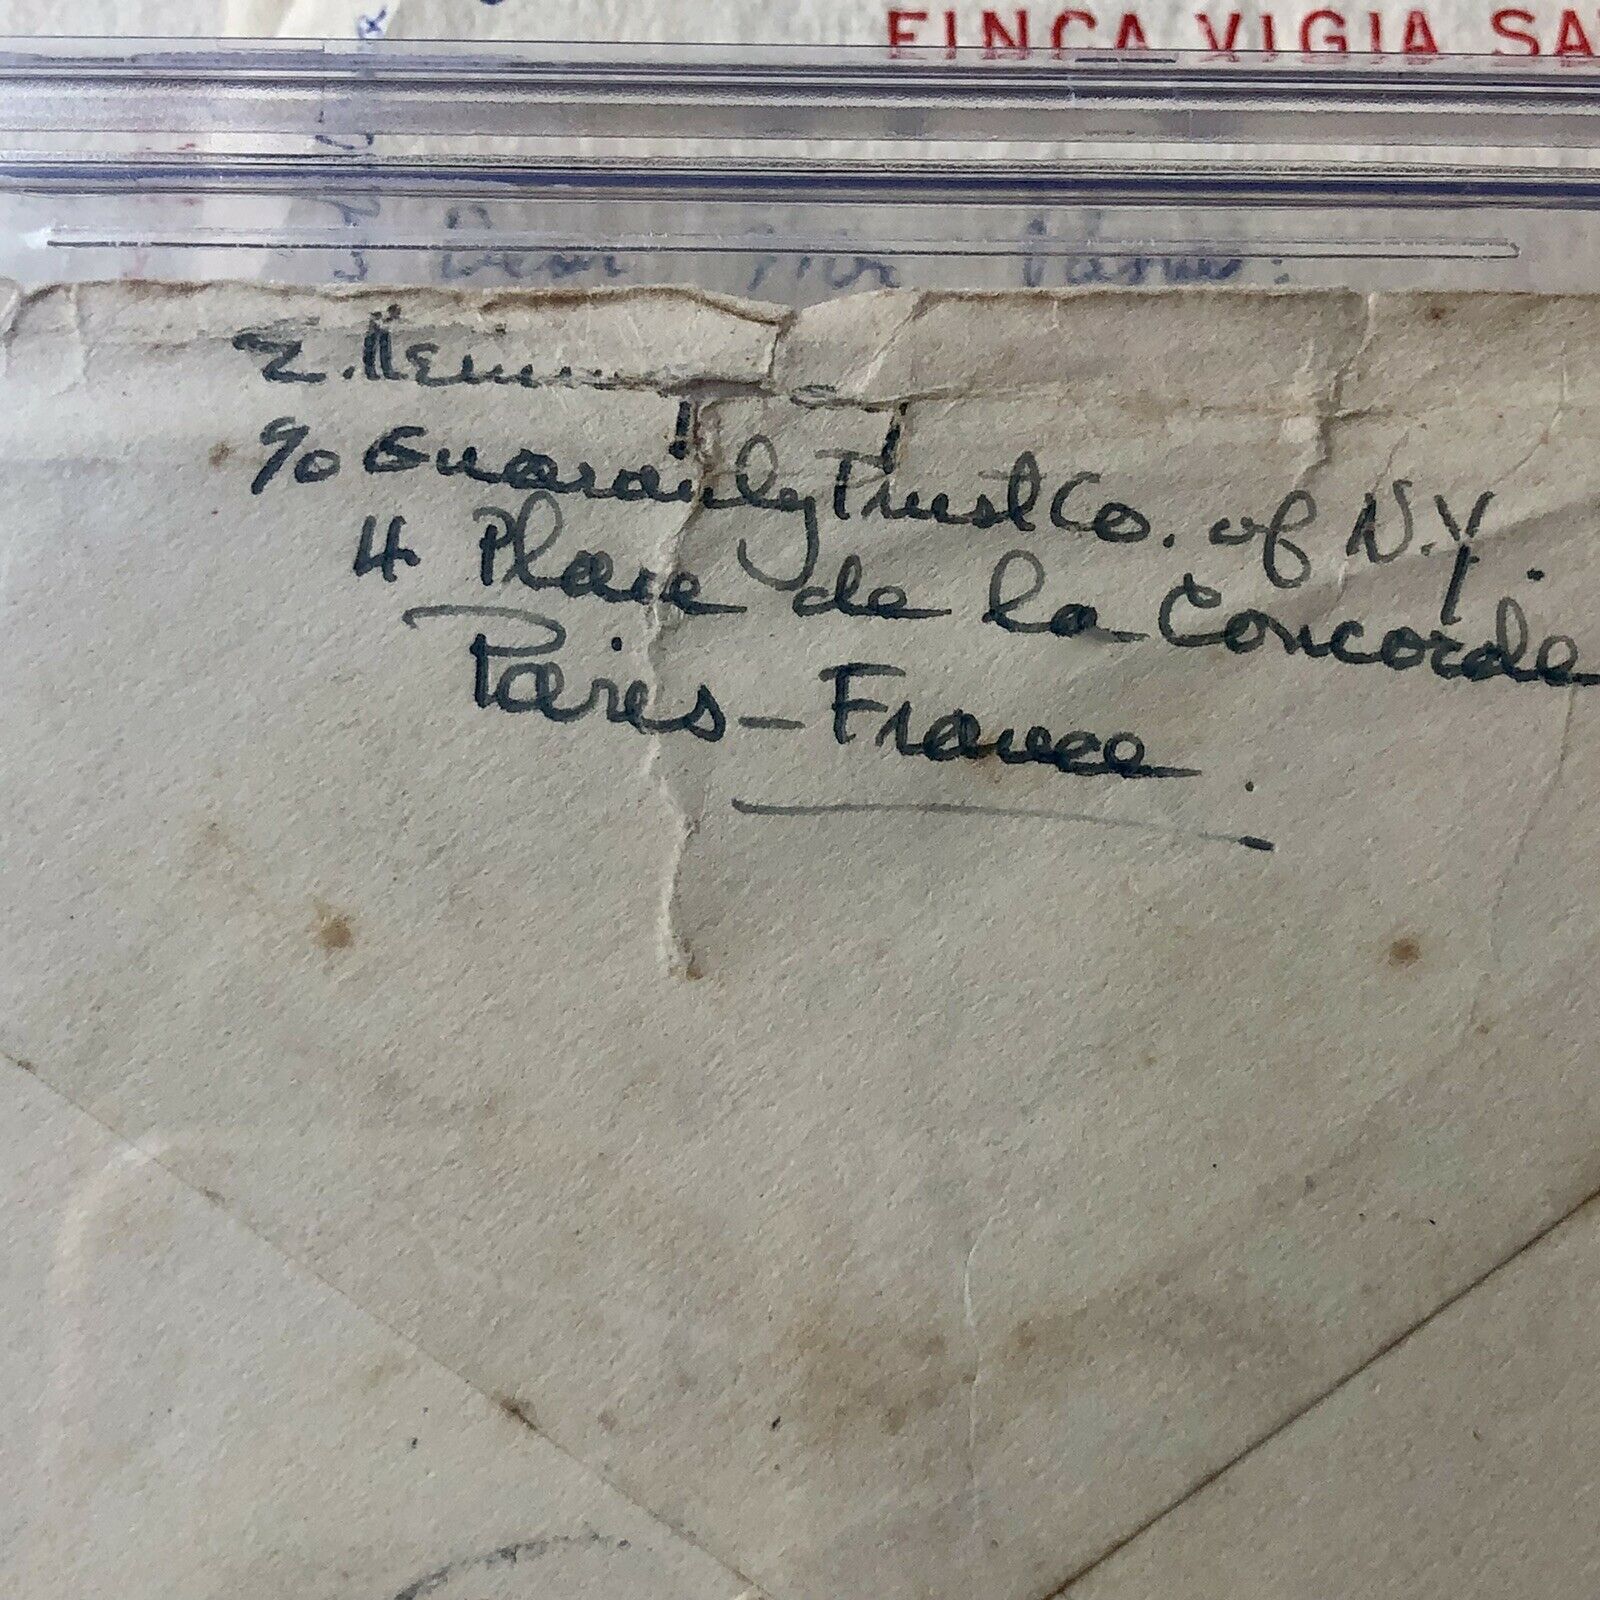 FINCA VIGIA SA
Dear Mr
E. Hemingway
c/o Guaranty Trust Co. of N.Y.
4 Place de la Concorde
Paris - France.